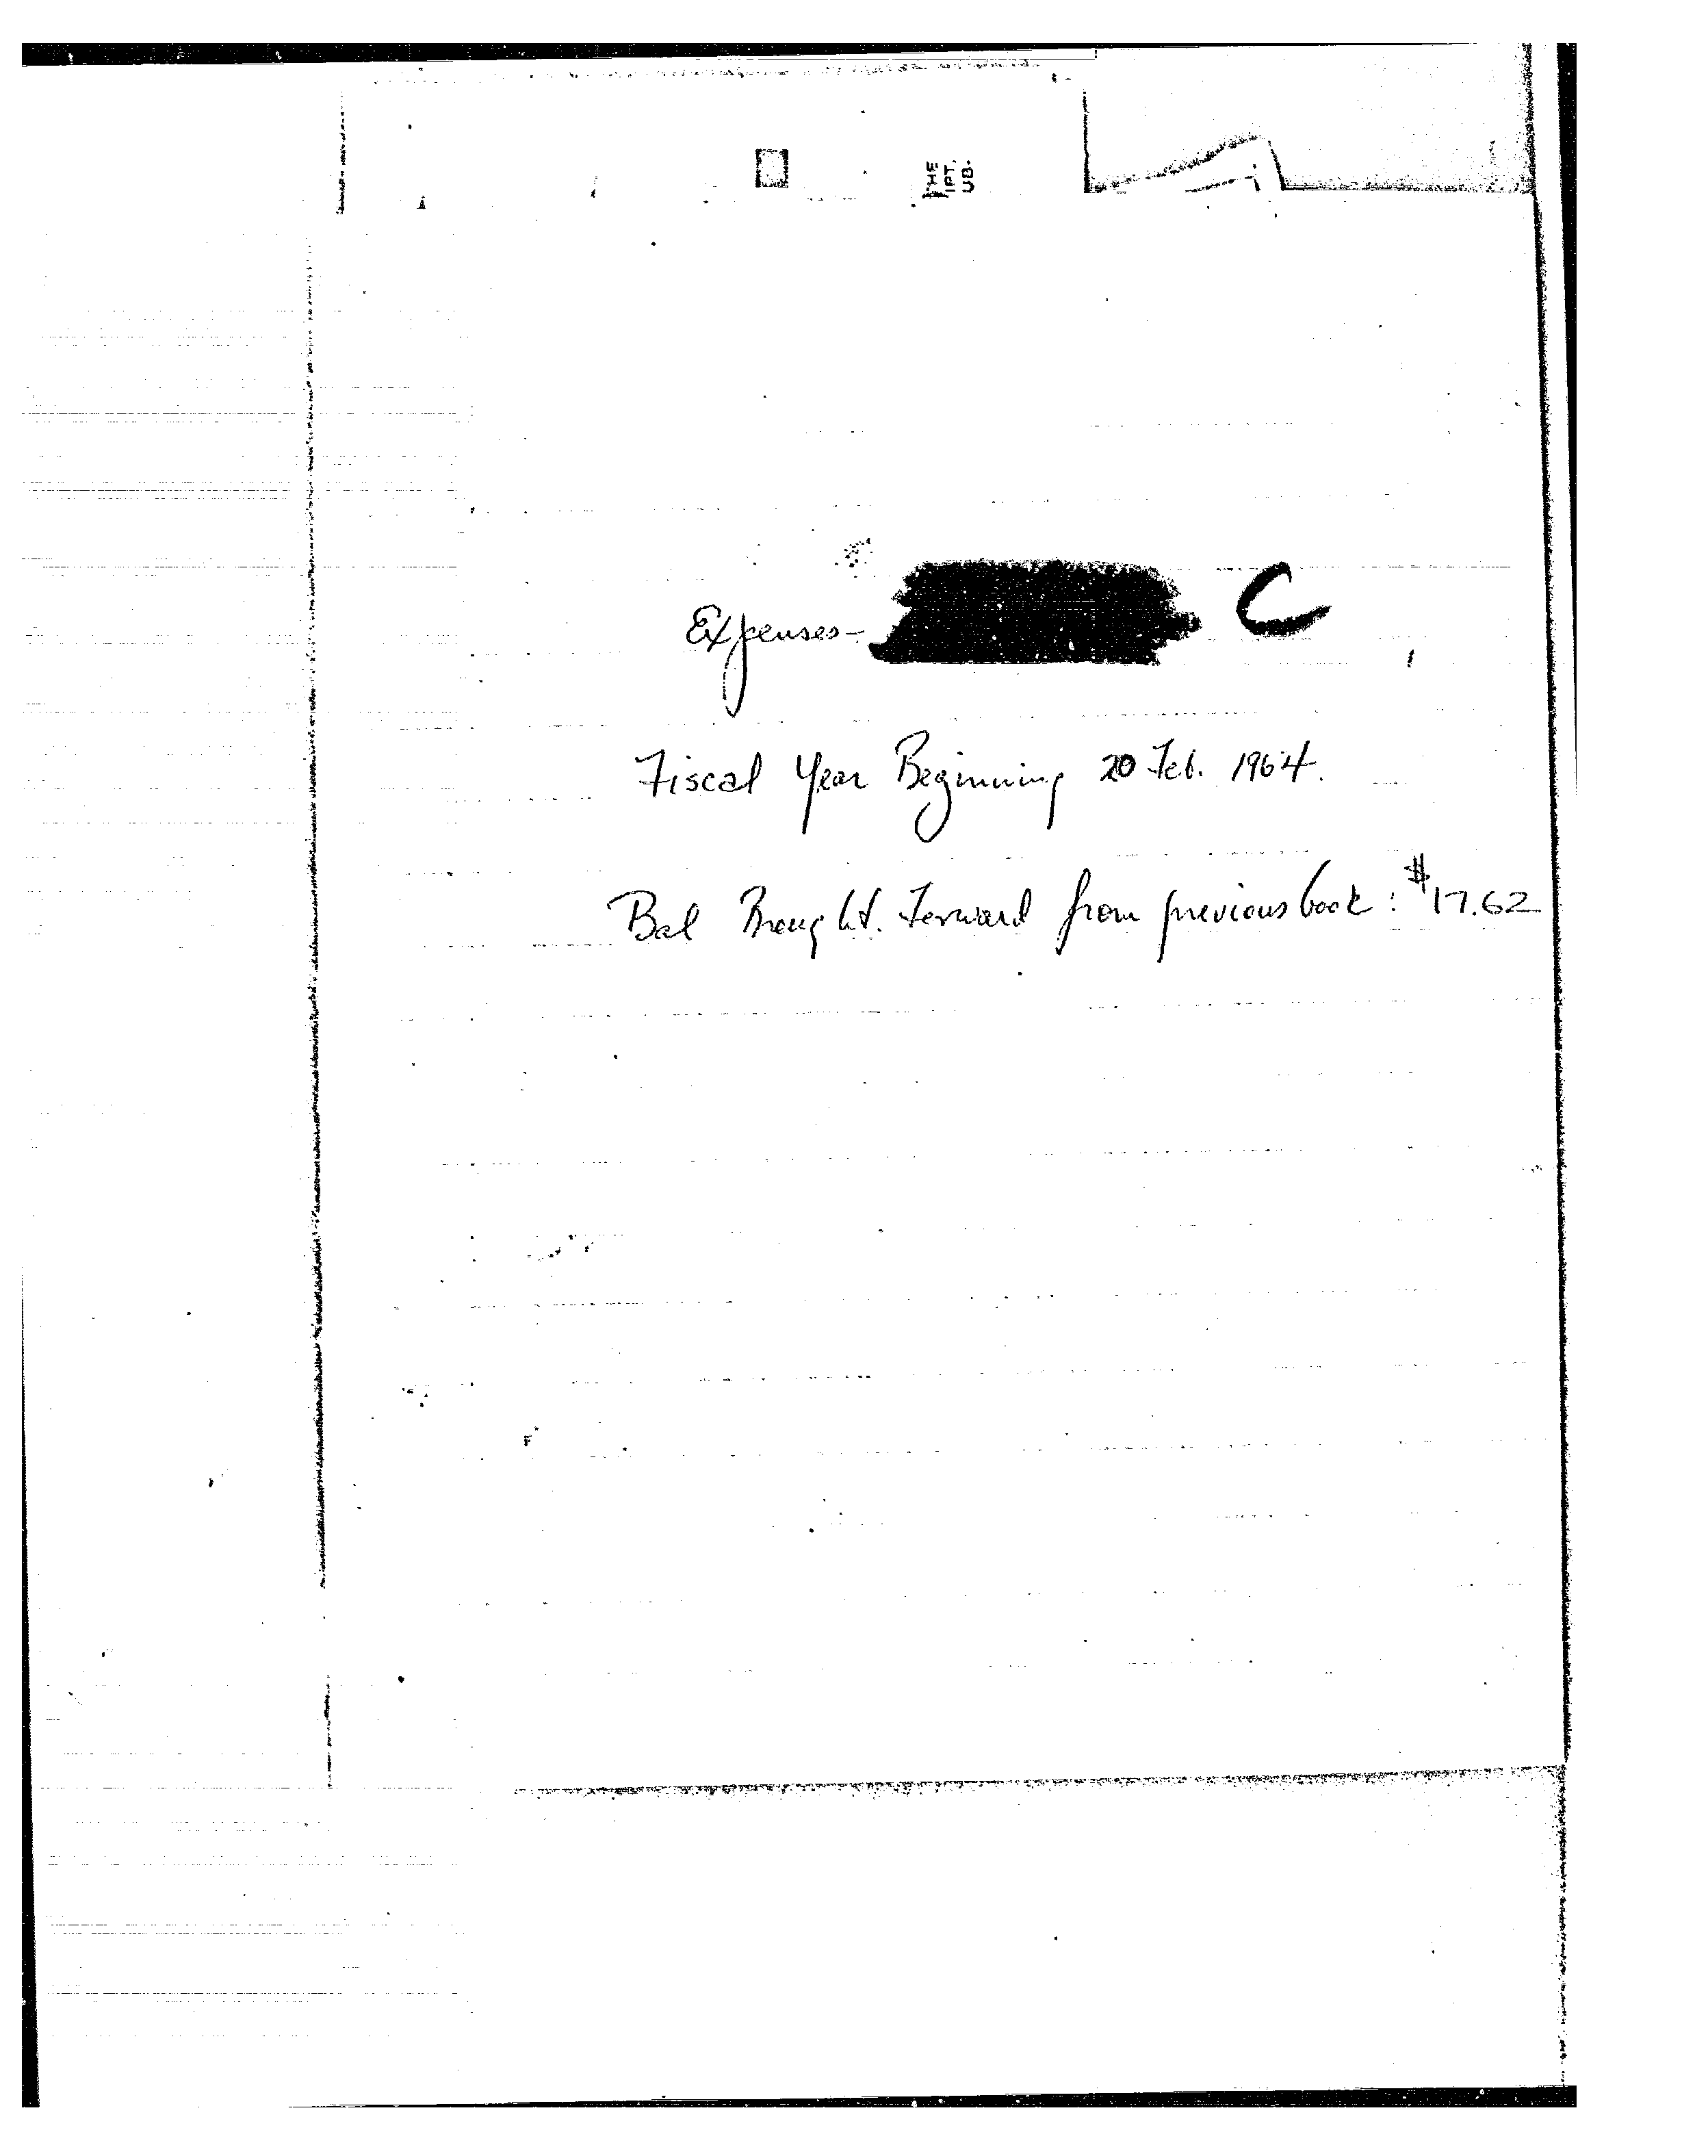 THE
IPT.
UB.
Expenses- C
Fiscal Year Beginning 20 Feb. 1964.
Bal Brought. Forward from previous book: $17.62